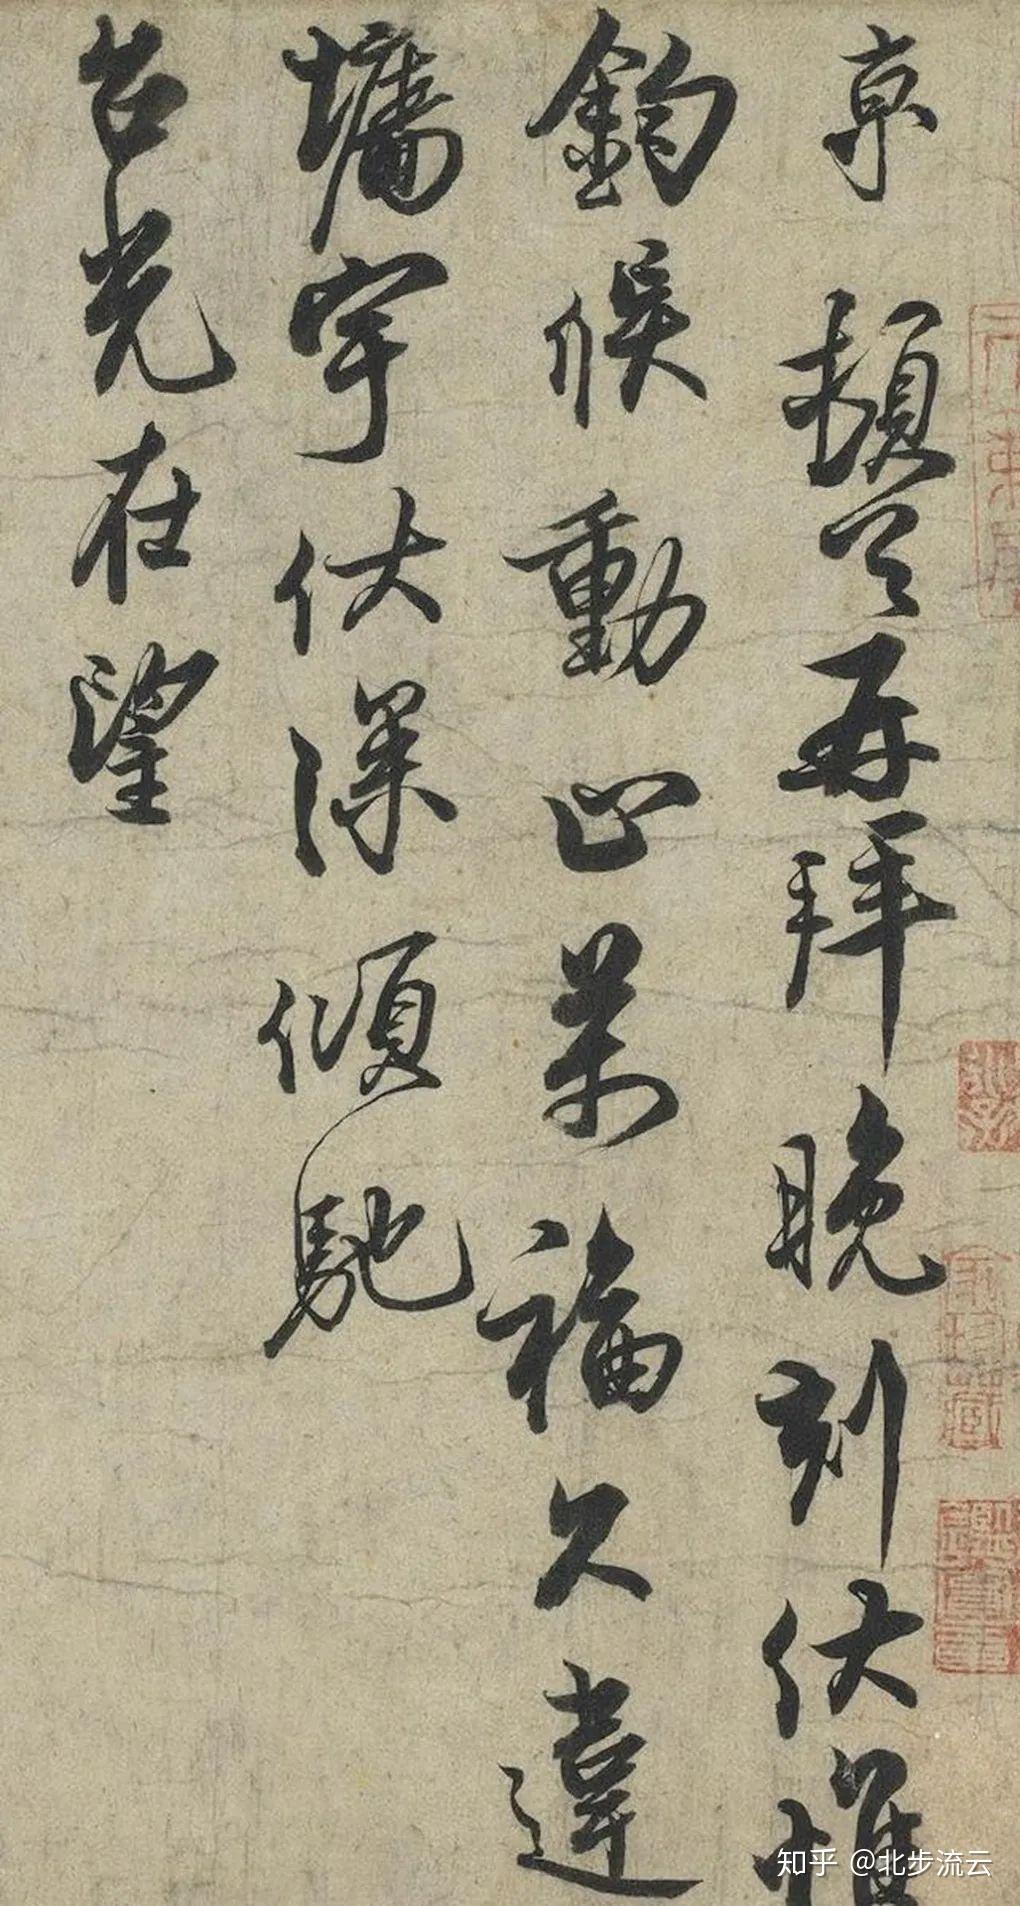 京頓首再拜晚刻伏惟
鈞候動止萬福久違
墉宇伏深傾馳
台光在望
知乎 @北步流云